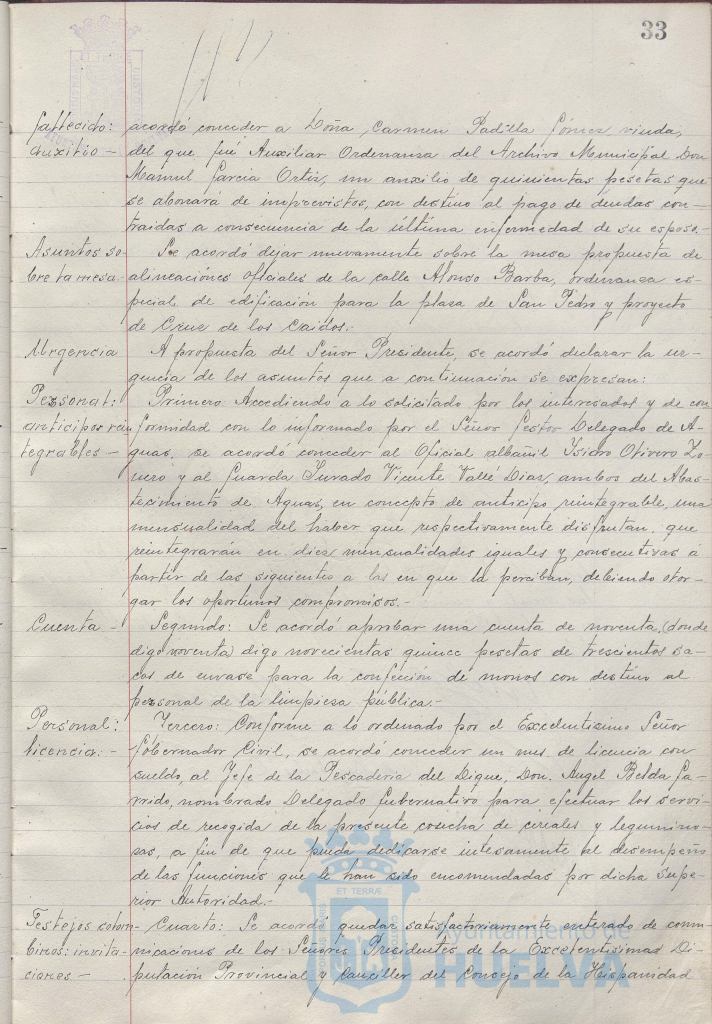 33
fallecido: acordó conceder a Doña Carmen Padilla Gómez viuda,
auxilio — del que fué Auxiliar Ordenanza del Archivo Municipal Don
Manuel García Ortiz, un auxilio de quinientas pesetas que
se abonará de imprevistos, con destino al pago de deudas con-
traidas a consecuencia de la última enfermedad de su esposo.-
Asuntos so- Se acordó dejar nuevamente sobre la mesa propuesta de
bre la mesa. alineaciónes oficiales de la calle Alonso Barba, ordenanza es-
pecial de edificación para la plaza de San Pedro y proyecto
de Cruz de los Caidos.-
Urgencia A propuesta del Señor Presidente, se acordó declarar la ur-
gencia de los asuntos que a continuación se expresan:
Personal: Primero: Accediendo a lo solicitado por los interesados y de con
anticipos rein formidad con lo informado por el Señor Gestor Delegado de A-
tegrables — guas, se acordó conceder al Oficial albañil Isidro Olivero
y al Guarda Jurado Vicente Vallé Diaz, ambos del Abas-
tecimiento de Aguas, en concepto de anticipo reintegrable, una
mensualidad del haber que respectivamente disfrutan, que
reintegrarán en diez mensualidades iguales y consecutivas á
partir de las siguientes a las en que la perciban, debiendo otor-
gar los oportunos compromisos.-
Cuenta — Segundo: Se acordó aprobar una cuenta de noventa, (donde
digo noventa) digo novecientas quince pesetas de trescientos sa-
cos de envase para la confección de monos con destino al
personal de la limpieza pública.-
Personal: Tercero: Conforme a lo ordenado por el Excelentisimo Señor
licencia.- Gobernador Civil, se acordó conceder un mes de licencia con
sueldo, al Jefe de la Pescaderia del Dique, Don. Angel Belda Ga-
rrido, nombrado Delegado Gubernativo para efectuar los servi-
cios de recogida de la presente cosecha de cereales y legumino-
sas, a fin de que puede dedicarse intesamente al desempeño
de las funciones que le han sido encomendadas por dicha supe-
rior Autoridad.-
Festejos colom- Cuarto: Se acordó quedar satisfactoriamente enterado de comu-
binos: invita- nicaciones de los Señores Presidentes de la Excelentisima Di-
ciones — putación Provincial y Canciller del Consejo de la Hispanidad
ET TERRÆ
Ayuntamiento de
HUELVA